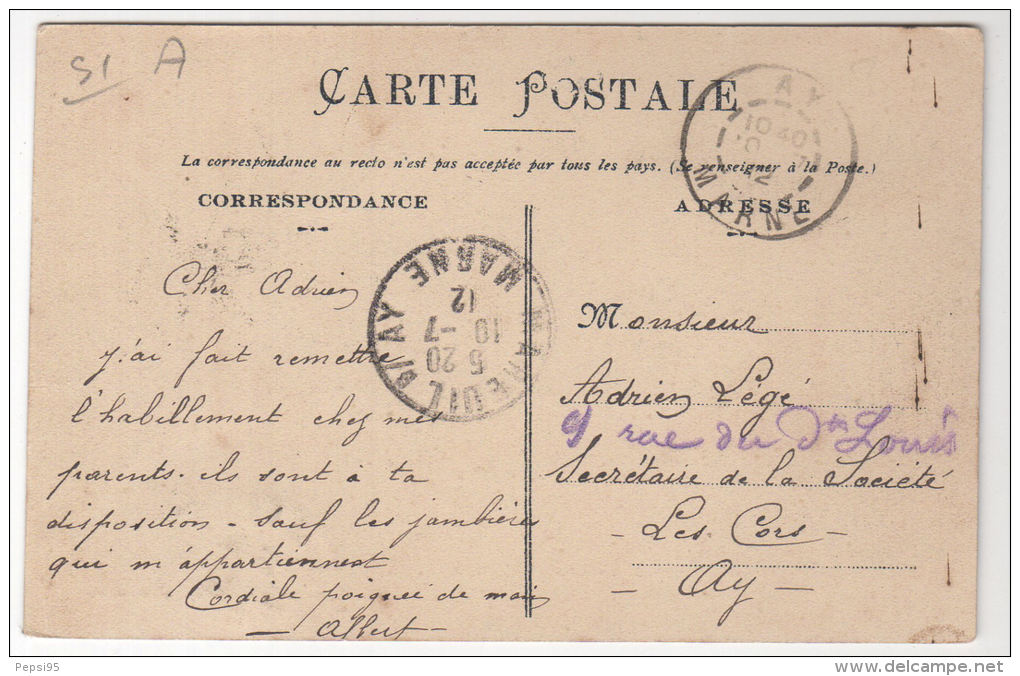 51 A
CARTE POSTALE
La correspondance au recto n'est pas acceptée par tous les pays. (Se renseigner à la Poste.)
CORRESPONDANCE
ADRESSE
AY
10 40
MARNE
MAREUIL S/AY
5 20
10 -7
12
MARNE
Cher Adrien
J'ai fait remettre
l'habillement chez mes
parents. ils sont à ta
disposition - sauf les jambières
qui m'appartiennent
Cordiale poignée de main
- Albert -
Monsieur
Adrien Légé
9 rue du Dr Louis
Secrétaire de la Société
- Les Cors -
- Ay -
Pepsi95
delcampe.net